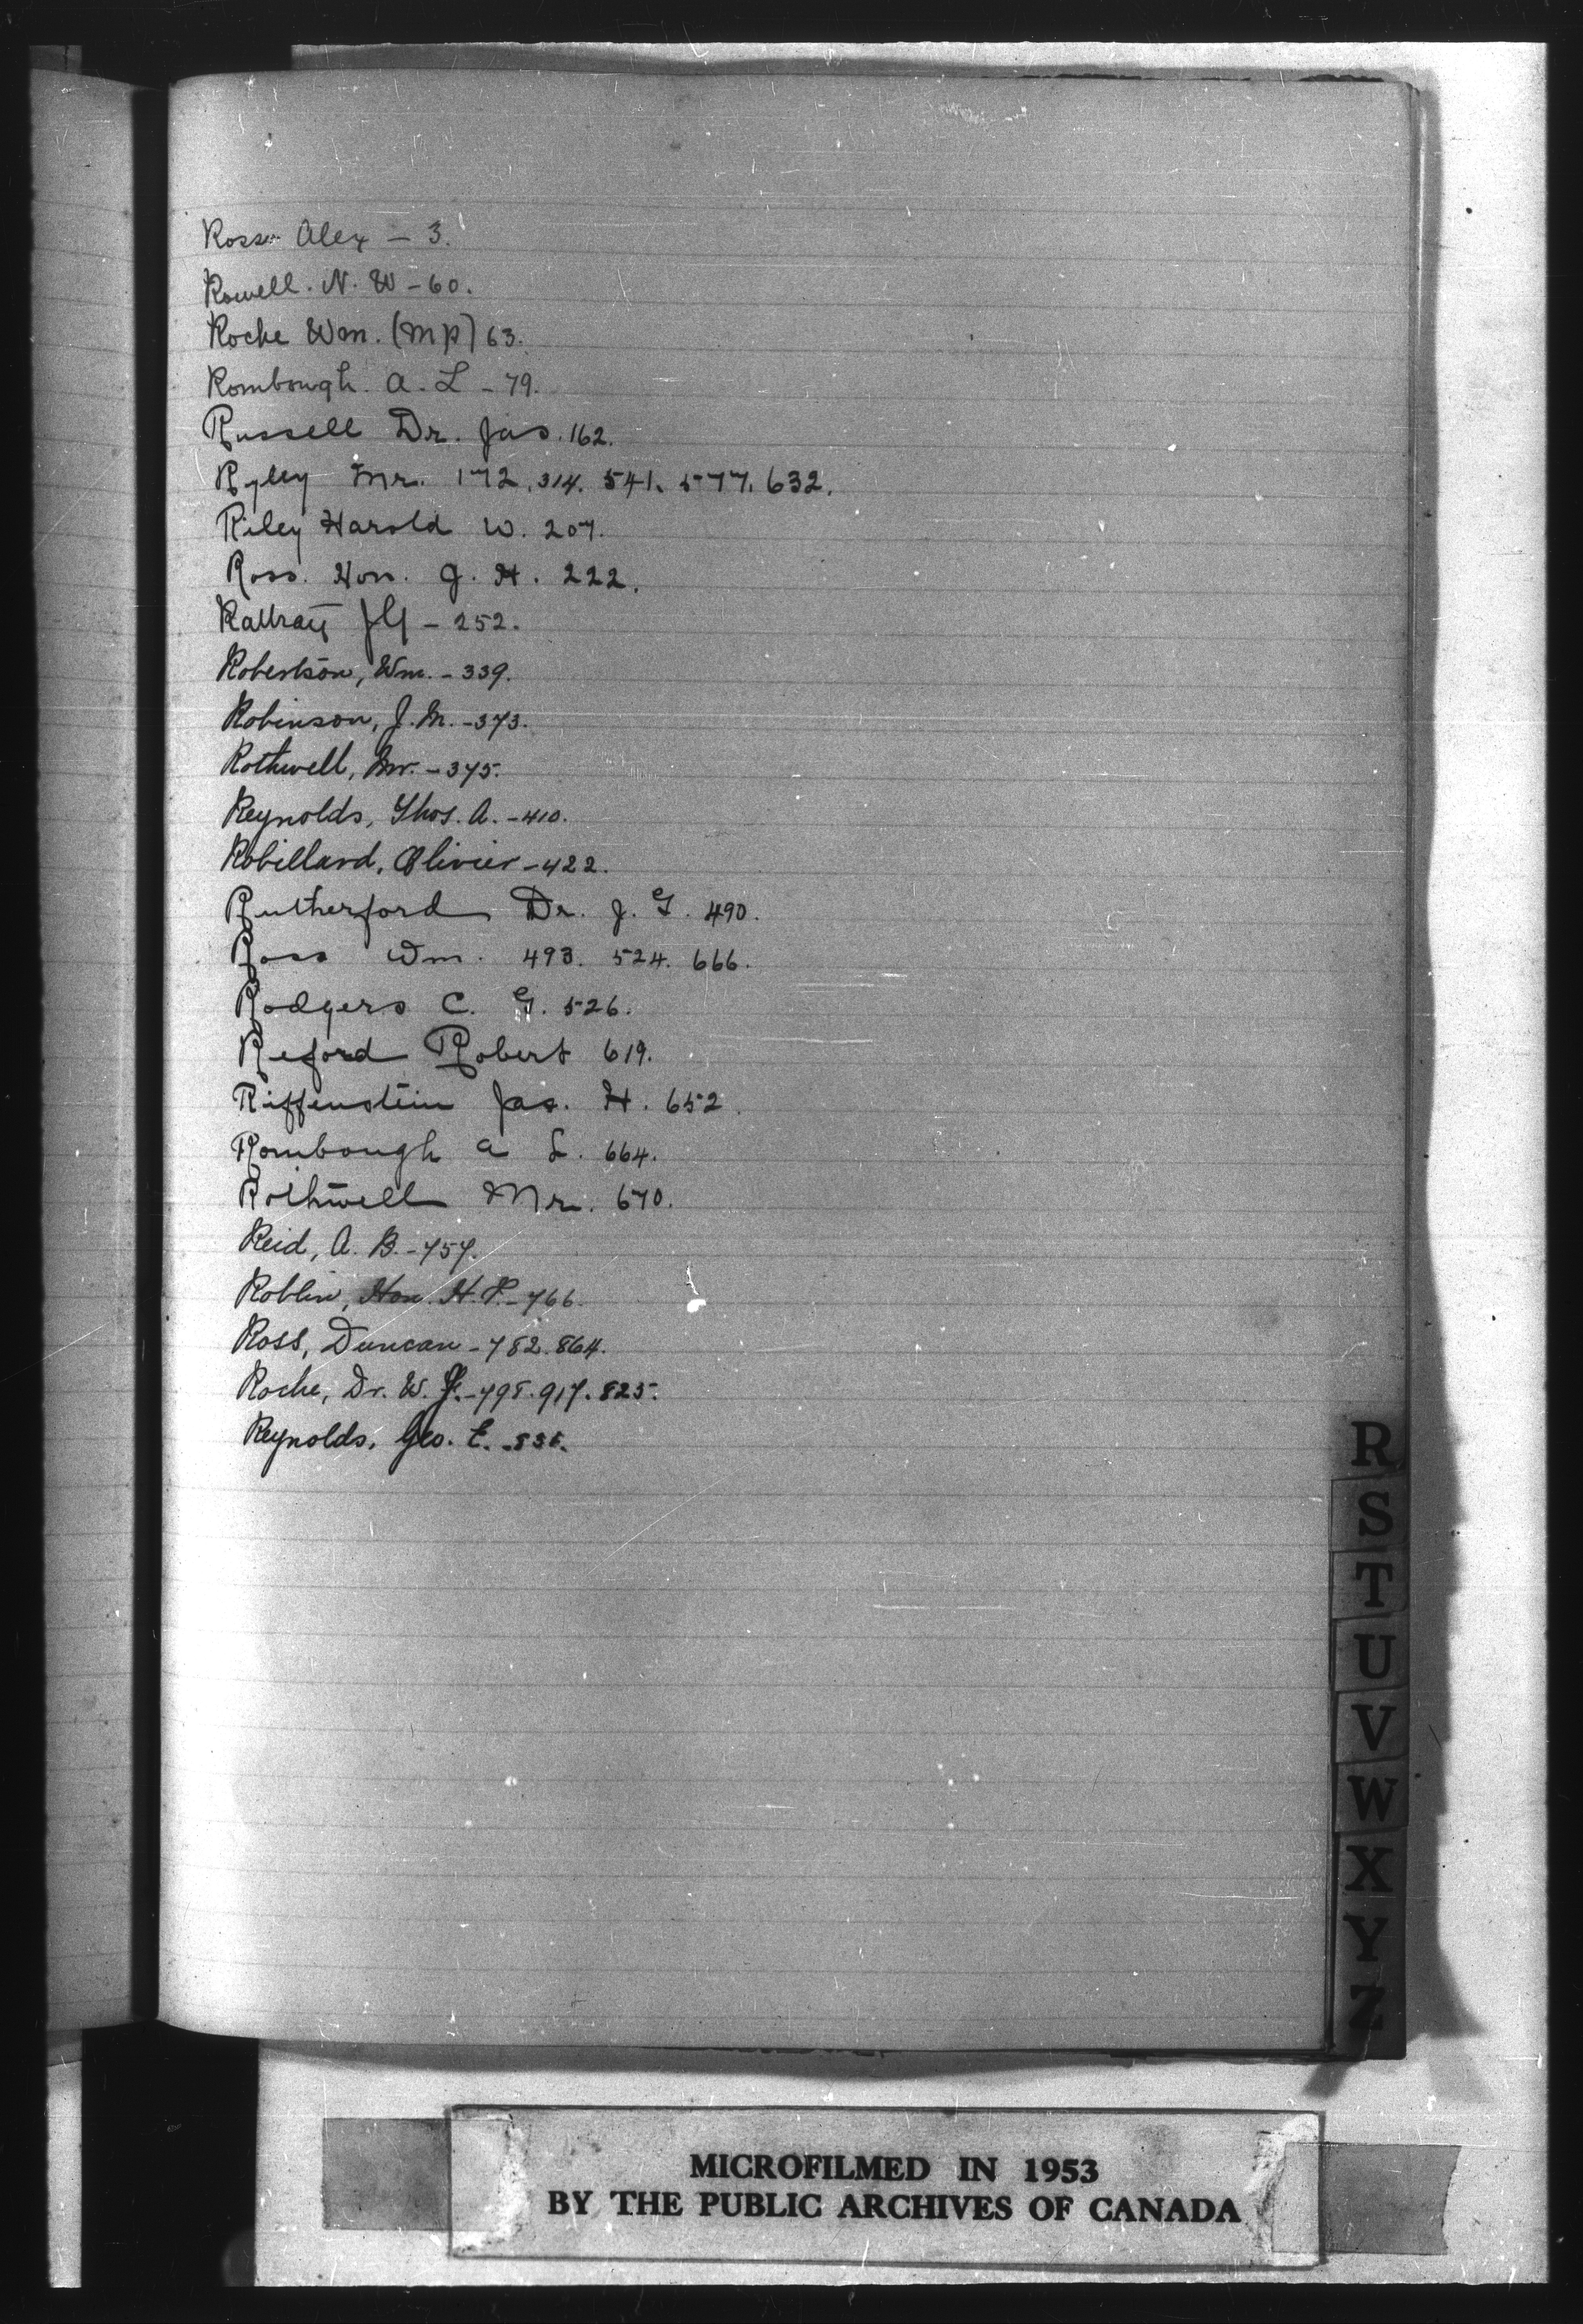 Ross Alex - 3.
Rowell. N. W - 60.
Roche Wm. (MP) 63.
Rombough. A. L - 79.
Russell Dr. Jas. 162.
Ryley Mr. 172. 314. 541. 577. 632.
Riley Harold W. 207.
Ross. Hon. J. H. 222.
Rattray - 252.
Robertson, Wm. - 339.
Robinson, J. M. - 373.
Rothwell, Mr. - 375.
Reynolds, Thos. A. - 410.
Robillard, Olivier - 422.
Rutherford Dr. J. G. 490.
Ross Wm. 493. 524. 666.
Rodgers C. G. 526.
Reford Robert 619.
Riffenstein Jas. H. 652.
Rombough A L. 664.
Rothwell Mr. 670.
Reid, A. B. - 757.
Roblin, Hon. H. P. - 766.
Ross, Duncan - 782. 864.
Roche, Dr. W. J. - 798. 917. 825.
Reynolds, Geo. E.
R
S
T
U
V
W
X
Y
Z
MICROFILMED IN 1953
BY THE PUBLIC ARCHIVES OF CANADA